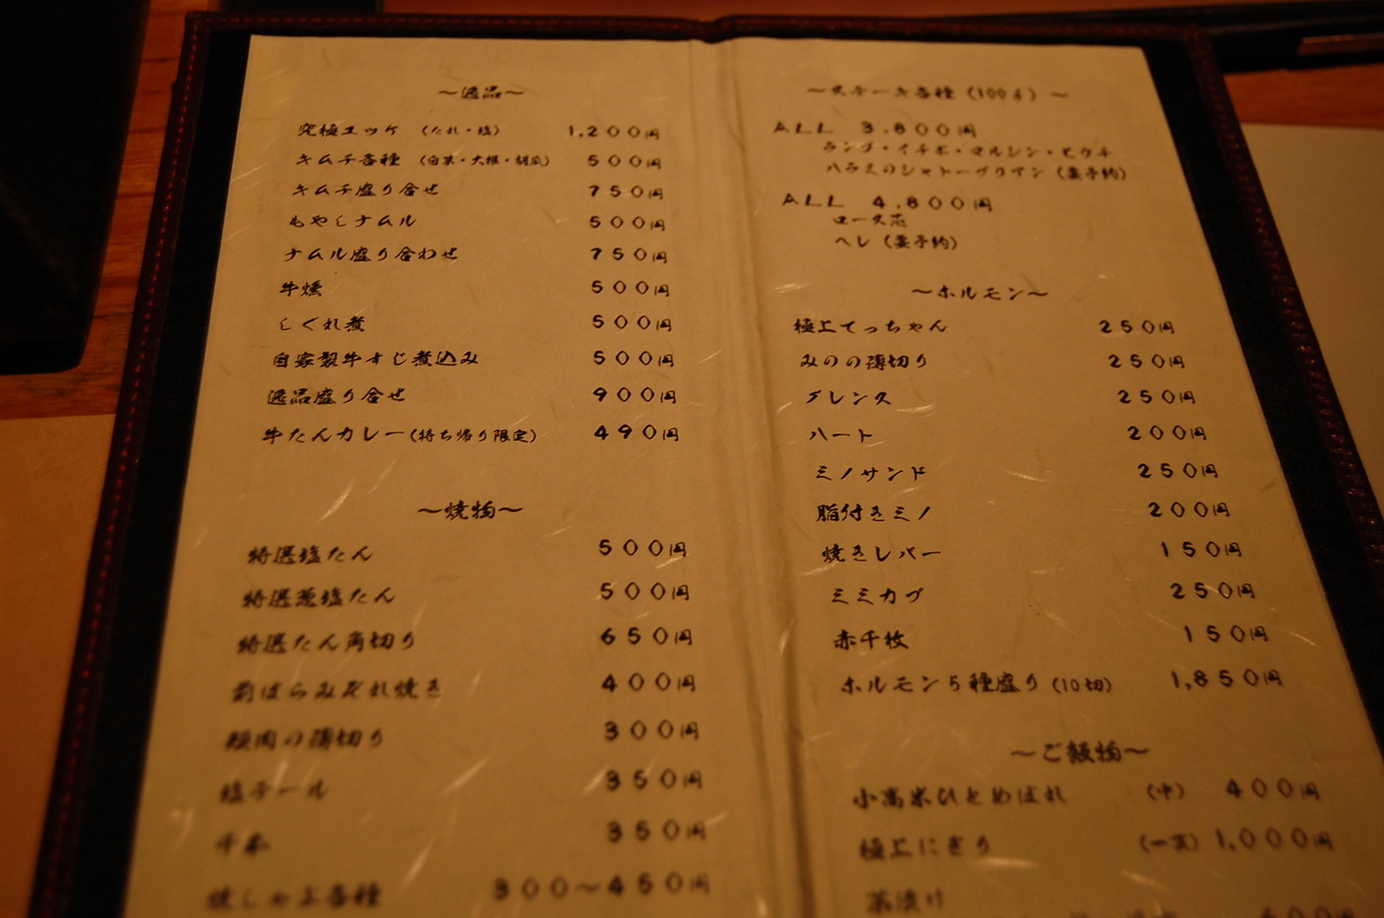 ～逸品～
究極ユッケ (たれ・塩) 1,200円
キムチ各種 (白菜・大根・胡瓜) 500円
キムチ盛り合せ 750円
もやしナムル 500円
ナムル盛り合わせ 750円
牛燻 500円
しぐれ煮 500円
自家製牛すじ煮込み 500円
逸品盛り合せ 900円
牛たんカレー(持ち帰り限定) 490円
～焼物～
特選塩たん 500円
特選葱塩たん 500円
特選たん角切り 650円
前ばらみぞれ焼き 400円
頬肉の薄切り 300円
塩テール 350円
350円
しゃぶ各種 300～450円
～ステーキ各種 (100g) ～
ALL 3.800円
ランプ・イチボ・マルシン・ヒウチ
ハラミのシャトーブリアン (要予約)
ALL 4.800円
ロース芯
ヘレ (要予約)
～ホルモン～
極上てっちゃん 250円
みのの薄切り 250円
グレンス 250円
ハート 200円
ミノサンド 250円
脂付きミノ 200円
焼きレバー 150円
ミミカブ 250円
赤千枚 150円
ホルモン5種盛り (10切) 1,850円
～ご飯物～
小高米ひとめぼれ (中) 400円
極上にぎり (一貫) 1,000円
茶漬け